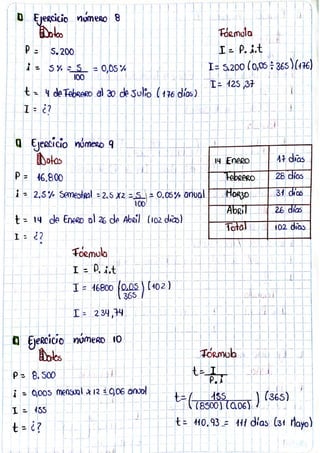 Ejercicio número 8
Datos
Fórmula
P = 5.200
I = P.i.t
i = 5% = 5/100 = 0,05%
I = 5.200 (0,05 ÷ 365)(176)
t = 4 de Febrero al 30 de Julio (176 días)
I = 125,37
I = ¿?
Ejercicio número 9
Datos
P = 16.800
i = 2.5% Semestral = 2.5 x2 = 5/100 = 0,05% anual
t = 14 de Enero al 26 de Abril (102 días)
I = ¿?
14 Enero 17 días
Febrero 28 días
Marzo 31 días
Abril 26 días
Total 102 días
Fórmula
I = P.i.t
I = 16800 (0.05/365)(102)
I = 234,74
Ejercicio número 10
Datos
Fórmula
P = 8.500
t = I/P.i
i = 0,005 mensual x 12 = 0,06 anual
I = 155
t = (155/(8500)(0.06)) (365)
t = ¿?
t = 110.93 = 111 días (31 Mayo)